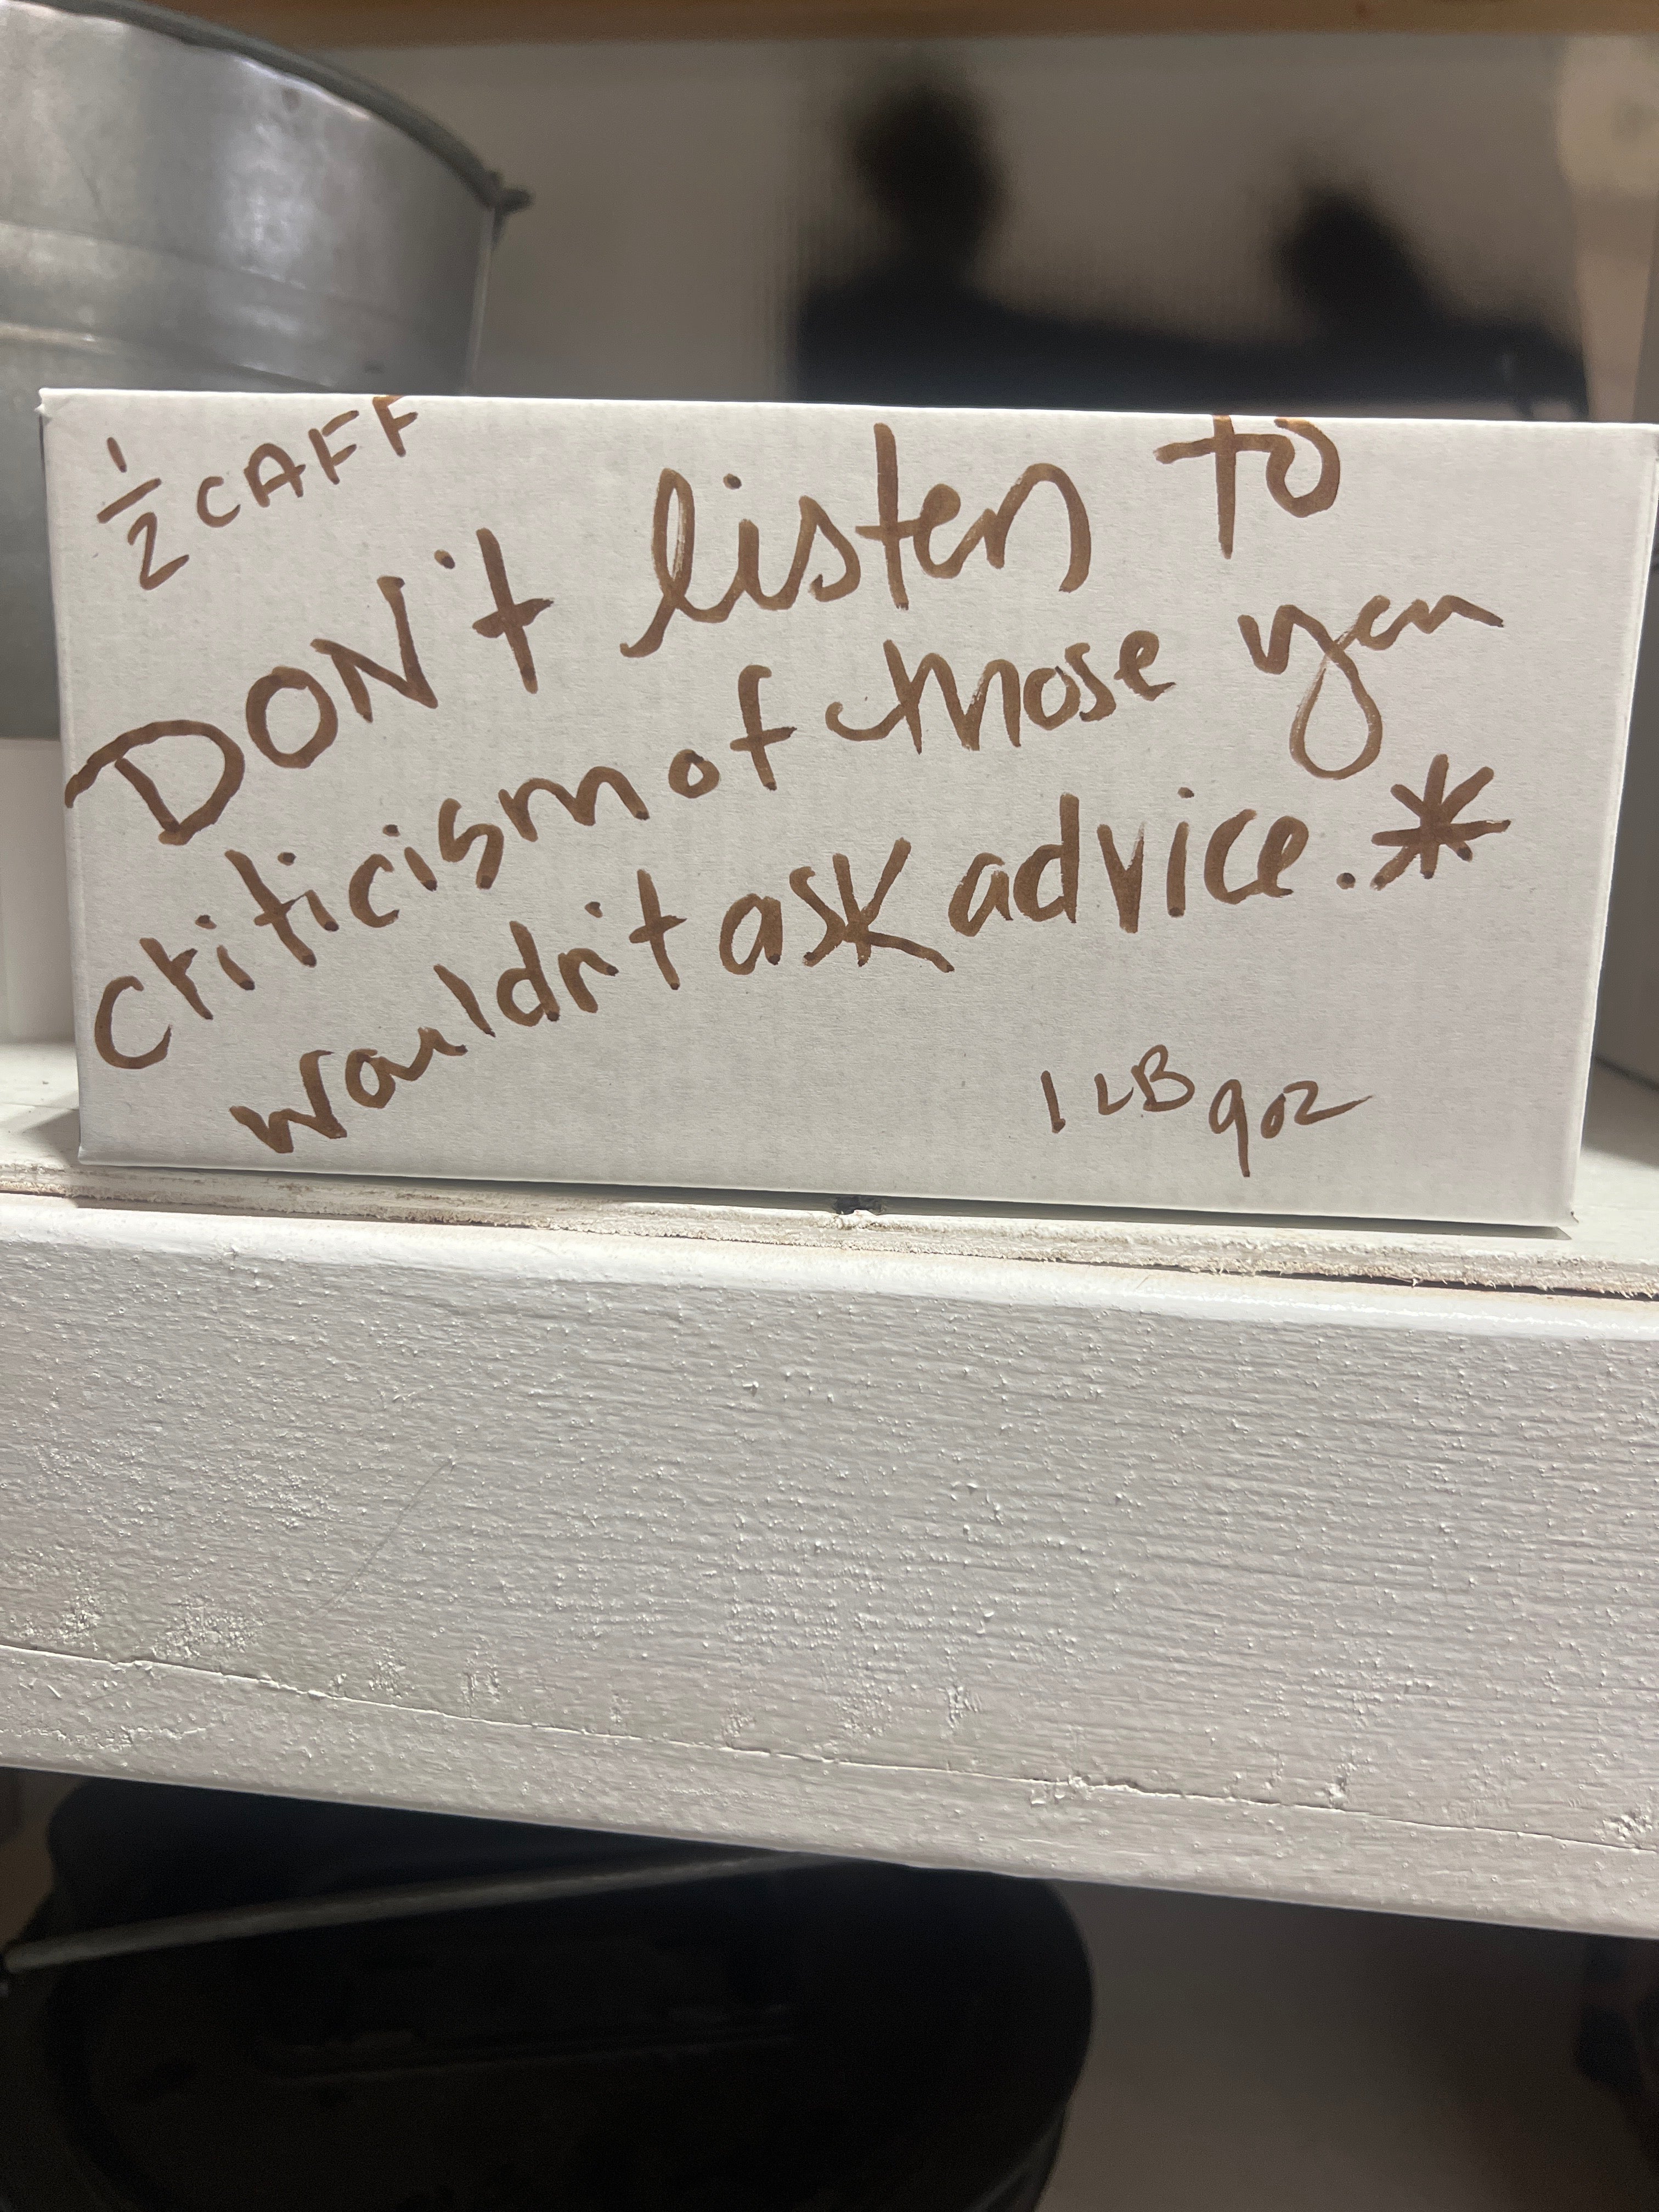 ½ CAFF
DON't listen to
criticism of those you
wouldn't ask advice.*
1 LB 9oz